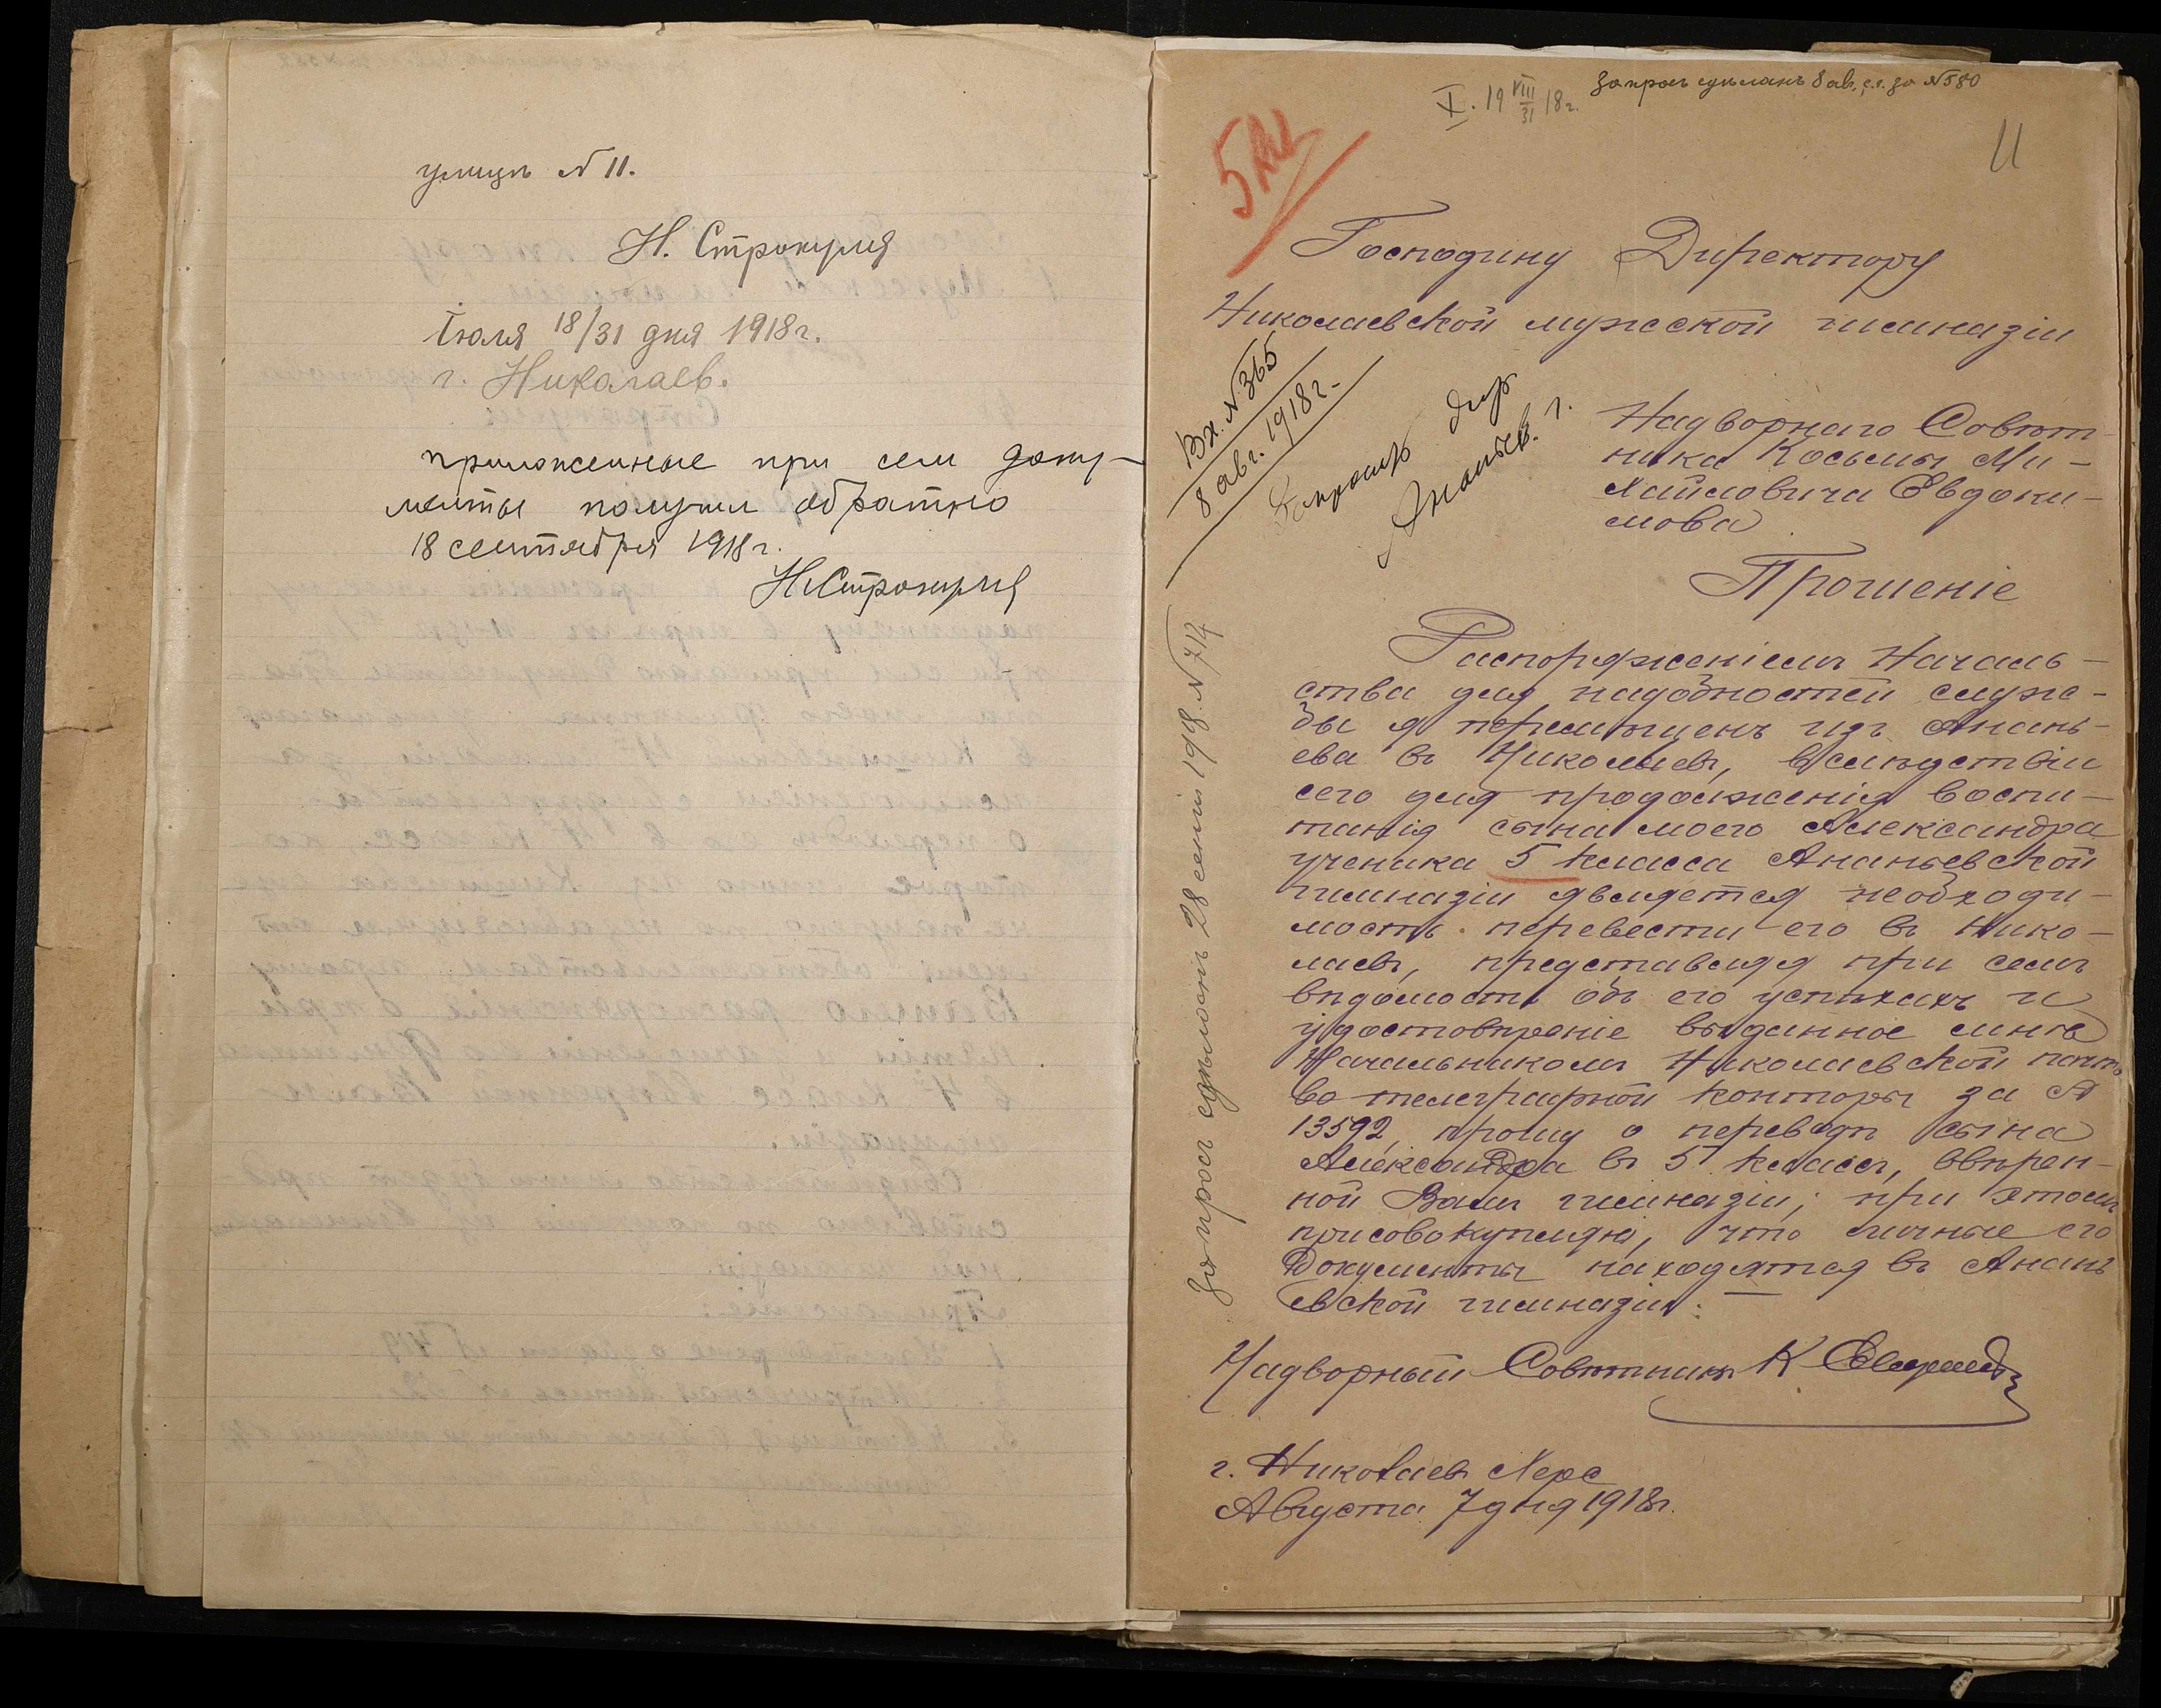 улицѣ № 11.
Н. Строкуля
Іюля 18/31 дня 1918 г.
г. Николаев.
приложенные при сем доку-
менты получил обратно
18 сентября 1918 г.
Н Строкуля
X. 19 VIII/31 18 г.
Запросъ сдѣланъ 8 авг. с.г. за № 580
11
Господину Директору
Николаевской мужской гимназіи
Вх. № 365
8 авг. 1918 г.
Запросить дир
Ананьев. г.
Надворнаго Совѣт-
ника Косьмы Ми-
хайловича Евдоки-
мова
Прошеніе
Распоряженіемъ Началь-
ства для надобностей служ-
бы я перемѣщенъ изъ Анань-
ева въ Николаевъ, вслѣдствіи
сего для продолженія воспи-
танія сына моего Александра
ученика 5 класса Ананьевской
гимназіи является необходи-
мость перевести его въ Нико-
лаевъ, представляя при семъ
вѣдомость объ его успѣхахъ и
удостовѣреніе выданное мнѣ
Начальникомъ Николаевской почто
во телеграфной конторы за №
13592, прошу о переводѣ сына
Александра въ 5 классъ, ввѣрен-
ной Вамъ гимназіи; при этомъ
присовокупляю, что личные его
документы находятся въ Анань
евской гимназіи. —
Надворный Совѣтникъ К Евдокимовъ
г. Николаевъ Херс
Августа 7 дня 1918 г.
Запросъ сдѣланъ 28 сент 1918. № 714